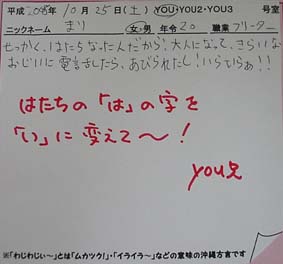 平成2008年10月25日(土) YOU・YOU2・YOU3 号室
ニックネーム まり 女・男 年令20 職業フリーター
せっかく、はたちなったんだから、大人になって、きらいな
おじいに電話したら、あびられたし!いらいらぁ!!
はたちの「は」の字を
「い」に変えて〜!
you兄
※「わじわじぃ〜」とは「ムカツク!」・「イライラ〜」などの意味の沖縄方言です